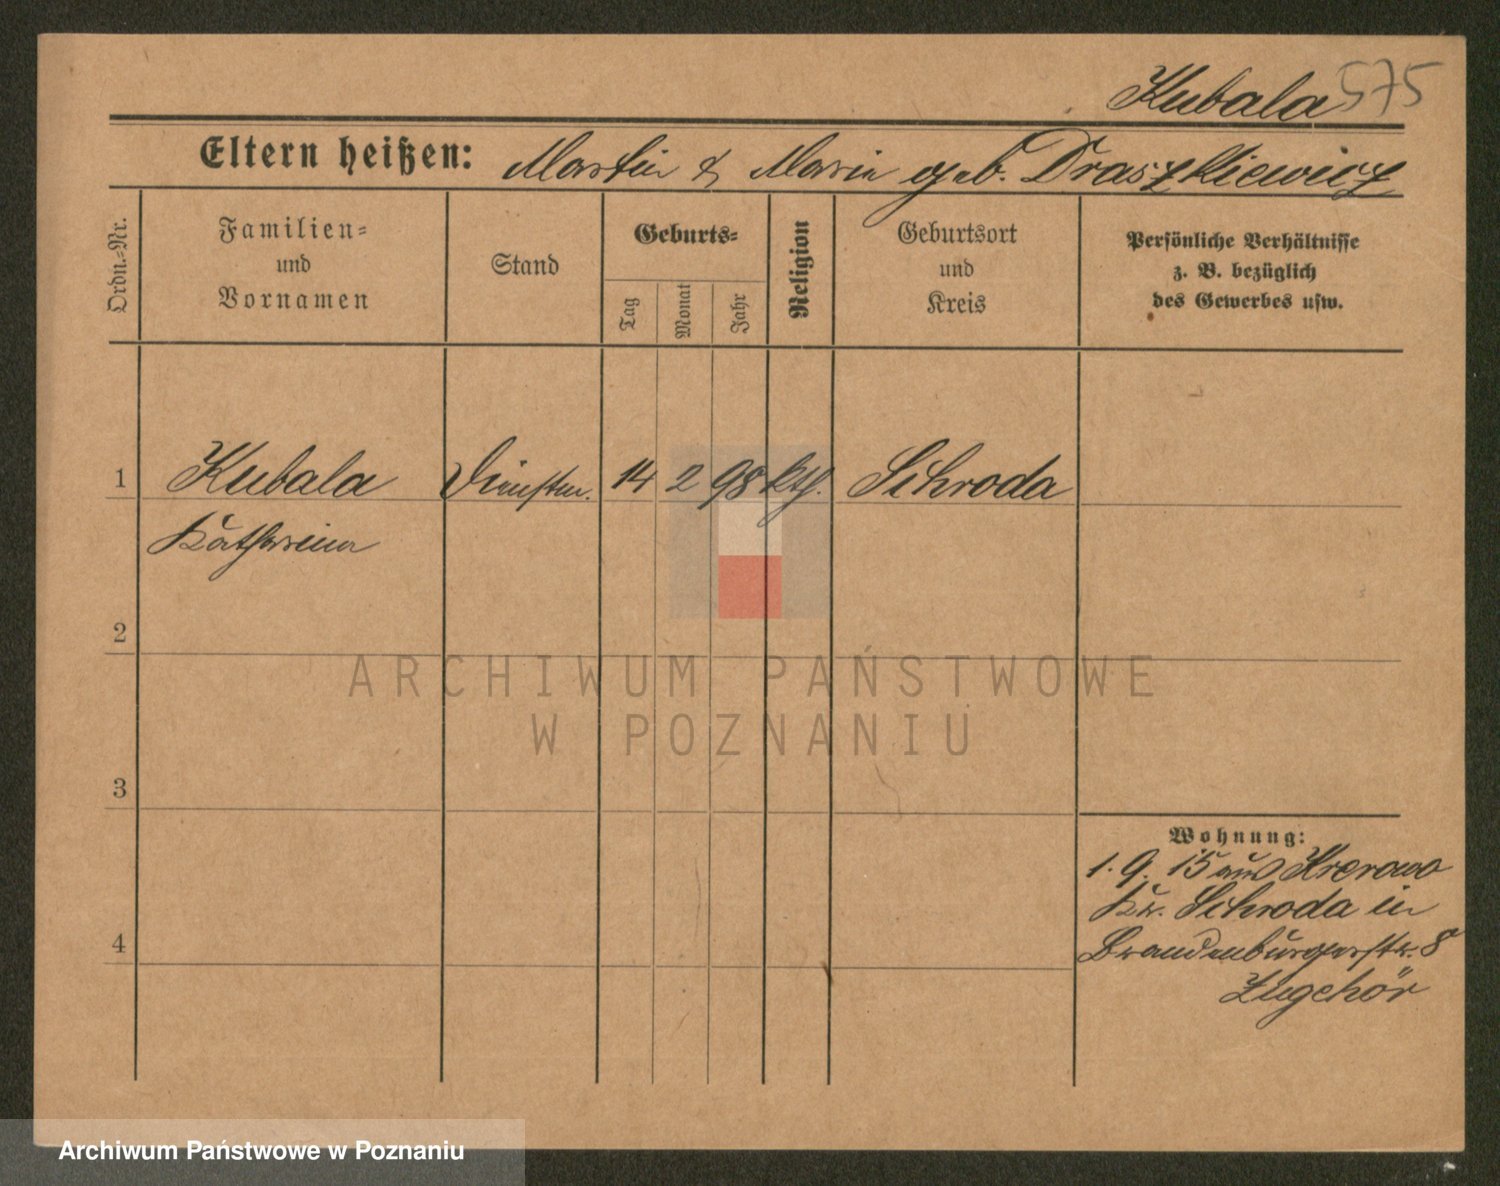 Kubala 575
Eltern heißen: Martin & Marie geb. Draszkiewicz
Ordn.-Nr.
Familien-
und
Vornamen
Stand
Geburts-
Tag
Monat
Jahr
Religion
Geburtsort
und
Kreis
Persönliche Verhältnisse
z. B. bezüglich
des Gewerbes usw.
1 Kubala Dienstm. 14 2 98 kth. Schroda
Katharina
2
ARCHIWUM PAŃSTWOWE
W POZNANIU
3
Wohnung:
1. 9. 15 aus Krerowo
Kr. Schroda in
Brandenburgerstr. 8
Zugehör
4
Archiwum Państwowe w Poznaniu